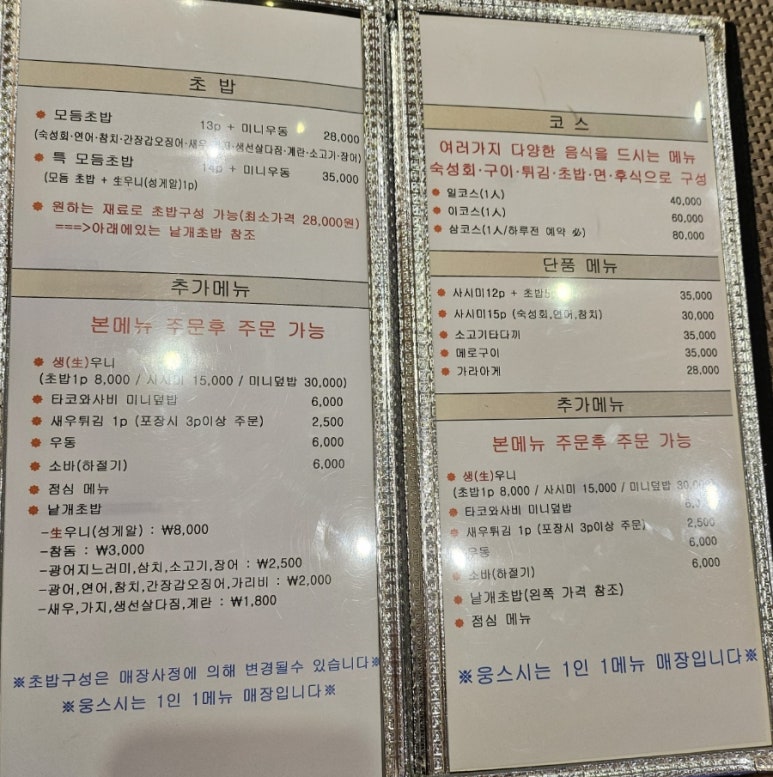 초 밥
모듬초밥 13p + 미니우동 28,000
(숙성회·연어·참치·간장갑오징어·새우 생선살다짐·계란·소고기·장어)
특 모듬초밥 14p + 미니우동 35,000
(모듬 초밥 + 生우니(성게알)1p)
원하는 재료로 초밥구성 가능(최소가격 28,000원)
===>아래에있는 낱개초밥 참조
추가메뉴
본메뉴 주문후 주문 가능
생(生)우니
(초밥1p 8,000 / 사시미 15,000 / 미니덮밥 30,000)
타코와사비 미니덮밥 6,000
새우튀김 1p (포장시 3p이상 주문) 2,500
우동 6,000
소바(하절기) 6,000
점심 메뉴
낱개초밥
-生우니(성게알) : ₩8,000
-참돔 : ₩3,000
-광어지느러미,삼치,소고기,장어 : ₩2,500
-광어,연어,참치,간장갑오징어,가리비 : ₩2,000
-새우,가지,생선살다짐,계란 : ₩1,800
※초밥구성은 매장사정에 의해 변경될수 있습니다※
※웅스시는 1인 1메뉴 매장입니다※
코 스
여러가지 다양한 음식을 드시는 메뉴
숙성회·구이·튀김·초밥·면·후식으로 구성
일코스(1人) 40,000
이코스(1人) 60,000
삼코스(1人/하루전 예약 必) 80,000
단품 메뉴
사시미12p + 초밥 35,000
사시미15p (숙성회,연어,참치) 30,000
소고기타다끼 35,000
메로구이 35,000
가라아게 28,000
추가메뉴
본메뉴 주문후 주문 가능
생(生)우니
(초밥1p 8,000 / 사시미 15,000 / 미니덮밥
타코와사비 미니덮밥
새우튀김 1p (포장시 3p이상 주문) 2,500
우동 6,000
소바(하절기) 6,000
낱개초밥(왼쪽 가격 참조)
점심 메뉴
※웅스시는 1인 1메뉴 매장입니다※